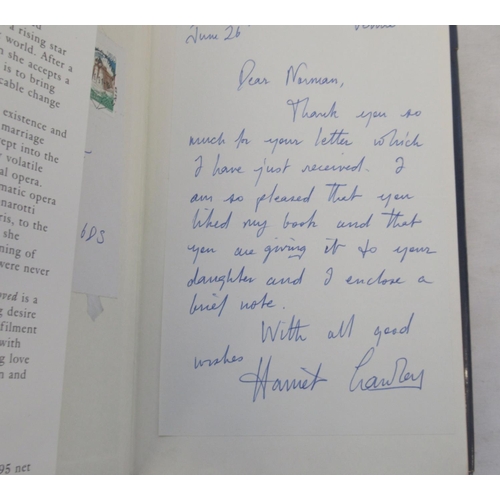 a rising star
world. After a
n she accepts a
is to bring
cable change
existence and
marriage
ept into the
volatile
al opera.
matic opera
narotti
ris, to the
she
ning of
were never
oved is a
ng desire
filment
with
ng love
n and
95 net
6DS
June 26
Dear Norman,
Thank you so
much for your letter which
I have just received. I
am so pleased that you
liked my book and that
you are giving it to your
daughter and I enclose a
brief note.
With all good
wishes
Harriet Crawley